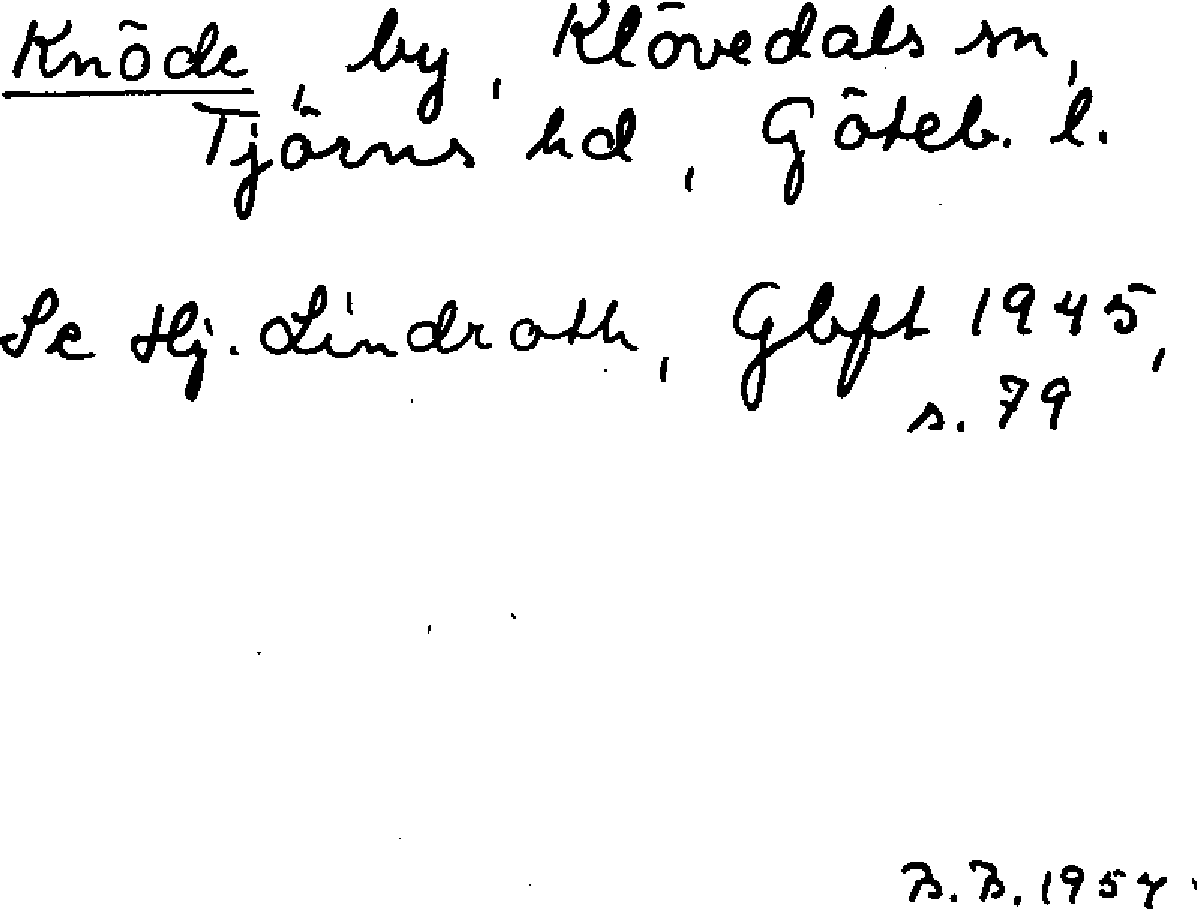 Knöde, by, Klövedals sn,
Tjörns hd, Göteb. l.
Se Hj. Lindroth, Gbft 1945,
s. 79
B.B. 1957.